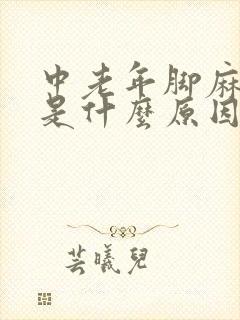 中老年脚麻
是什麼原因
芸曦兒